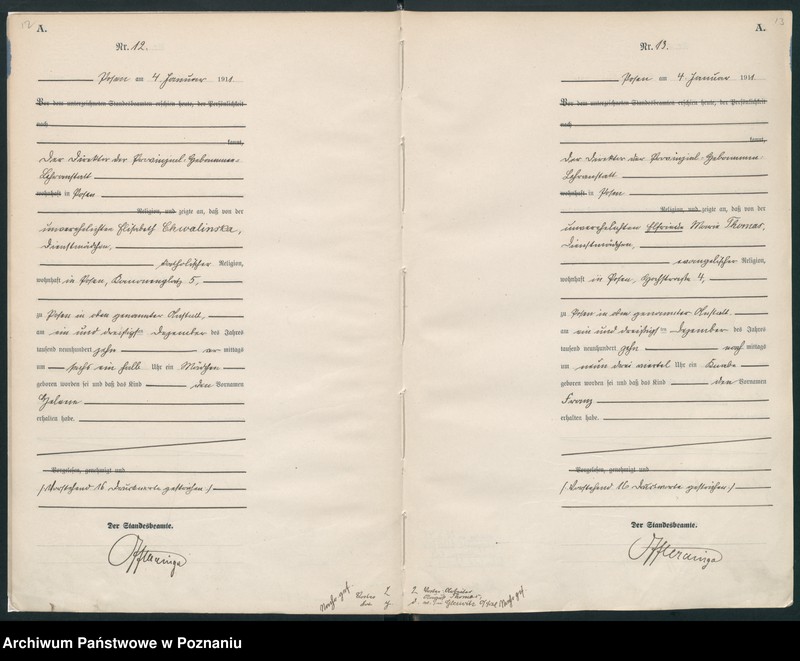 A.
Nr. 12.
Posen am 4. Januar 1911
Vor dem unterzeichneten Standesbeamten erschien heute, der Persönlichkeit
nach
kannt,
Der Direktor der Provinzial-Hebammen-
Lehranstalt
wohnhaft in Posen
Religion, und zeigte an, daß von der
unverehelichten Elisabeth Chwalinska,
Dienstmädchen,
katholischer Religion,
wohnhaft in Posen, Kanonenplatz 5,
zu Posen in oben genannter Anstalt,
am ein und dreißigsten Dezember des Jahres
tausend neunhundert zehn vor mittags
um sechs ein halb Uhr ein Mädchen
geboren worden sei und daß das Kind den Vornamen
Helene
erhalten habe.
Vorgelesen, genehmigt und
(Vorstehend 16 Druckworte gestrichen.)
Der Standesbeamte.
A.
13
Nr. 13.
Posen am 4. Januar 1911.
Vor dem unterzeichneten Standesbeamten erschien heute, der Persönlichkeit
nach
kannt,
Der Direktor der Provinzial-Hebammen-
Lehranstalt
wohnhaft in Posen
Religion, und zeigte an, daß von der
unverehelichten Elfriede Marie Thomas,
Dienstmädchen,
evangelischer Religion,
wohnhaft in Posen, Hochstraße 4,
zu Posen in oben genannter Anstalt
am ein und dreißigsten Dezember des Jahres
tausend neunhundert zehn nach mittags
um neun drei viertel Uhr ein Knabe
geboren worden sei und daß das Kind den Vornamen
Franz
erhalten habe.
Vorgelesen, genehmigt und
(Vorstehend 16 Druckworte gestrichen.)
Der Standesbeamte.
Archiwum Państwowe w Poznaniu